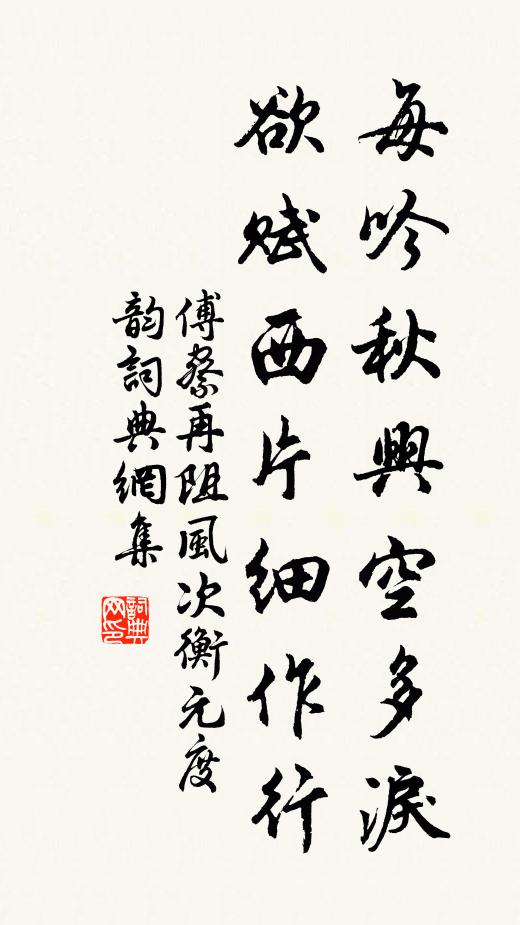 每吟秋興空多淚
欲賦西片細作行
傅察再阻風次衡元度
韵詞典網集
詞典
网印